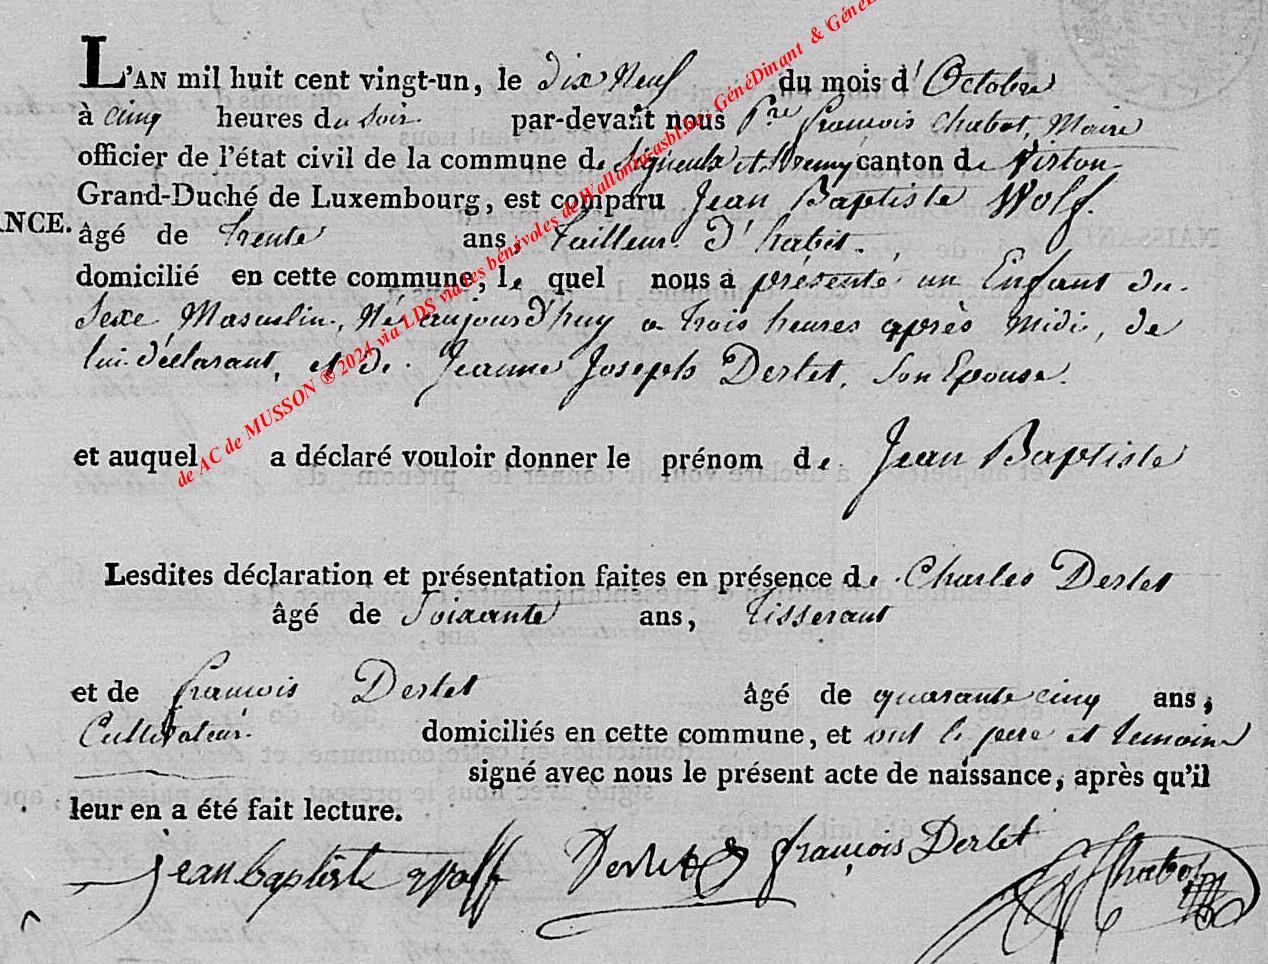 L'AN mil huit cent vingt-un, le dix Neuf du mois d'Octobre
à cinq heures du soir par-devant nous Pre françois Chabot, Maire
officier de l'état civil de la commune de Signeulx et canton de Virton
Grand-Duché de Luxembourg, est comparu Jean Baptiste Wolf.
ANCE.
âgé de trente ans, tailleur d'habit.
domicilié en cette commune, le quel nous a présenté un Enfant du
Sexe Masculin, Né aujourd'huy a trois heures après midi, de
lui déclarant, et de Jeanne Joseph Derlet, son Epouse.
et auquel a déclaré vouloir donner le prénom de Jean Baptiste
Lesdites déclaration et présentation faites en présence de Charles Derlet
âgé de Soixante ans, tisserant
et de françois Derlet âgé de quarante cinq ans,
Cultivateur. domiciliés en cette commune, et ont le pere et temoins
signé avec nous le présent acte de naissance, après qu'il
leur en a été fait lecture.
jean baptiste Wolff Derlet françois Derlet Chabot
de AC de MUSSON ® 2024 via LDS via les bénévoles de Wallonia-asbl.be, GénéDinant & GénéD